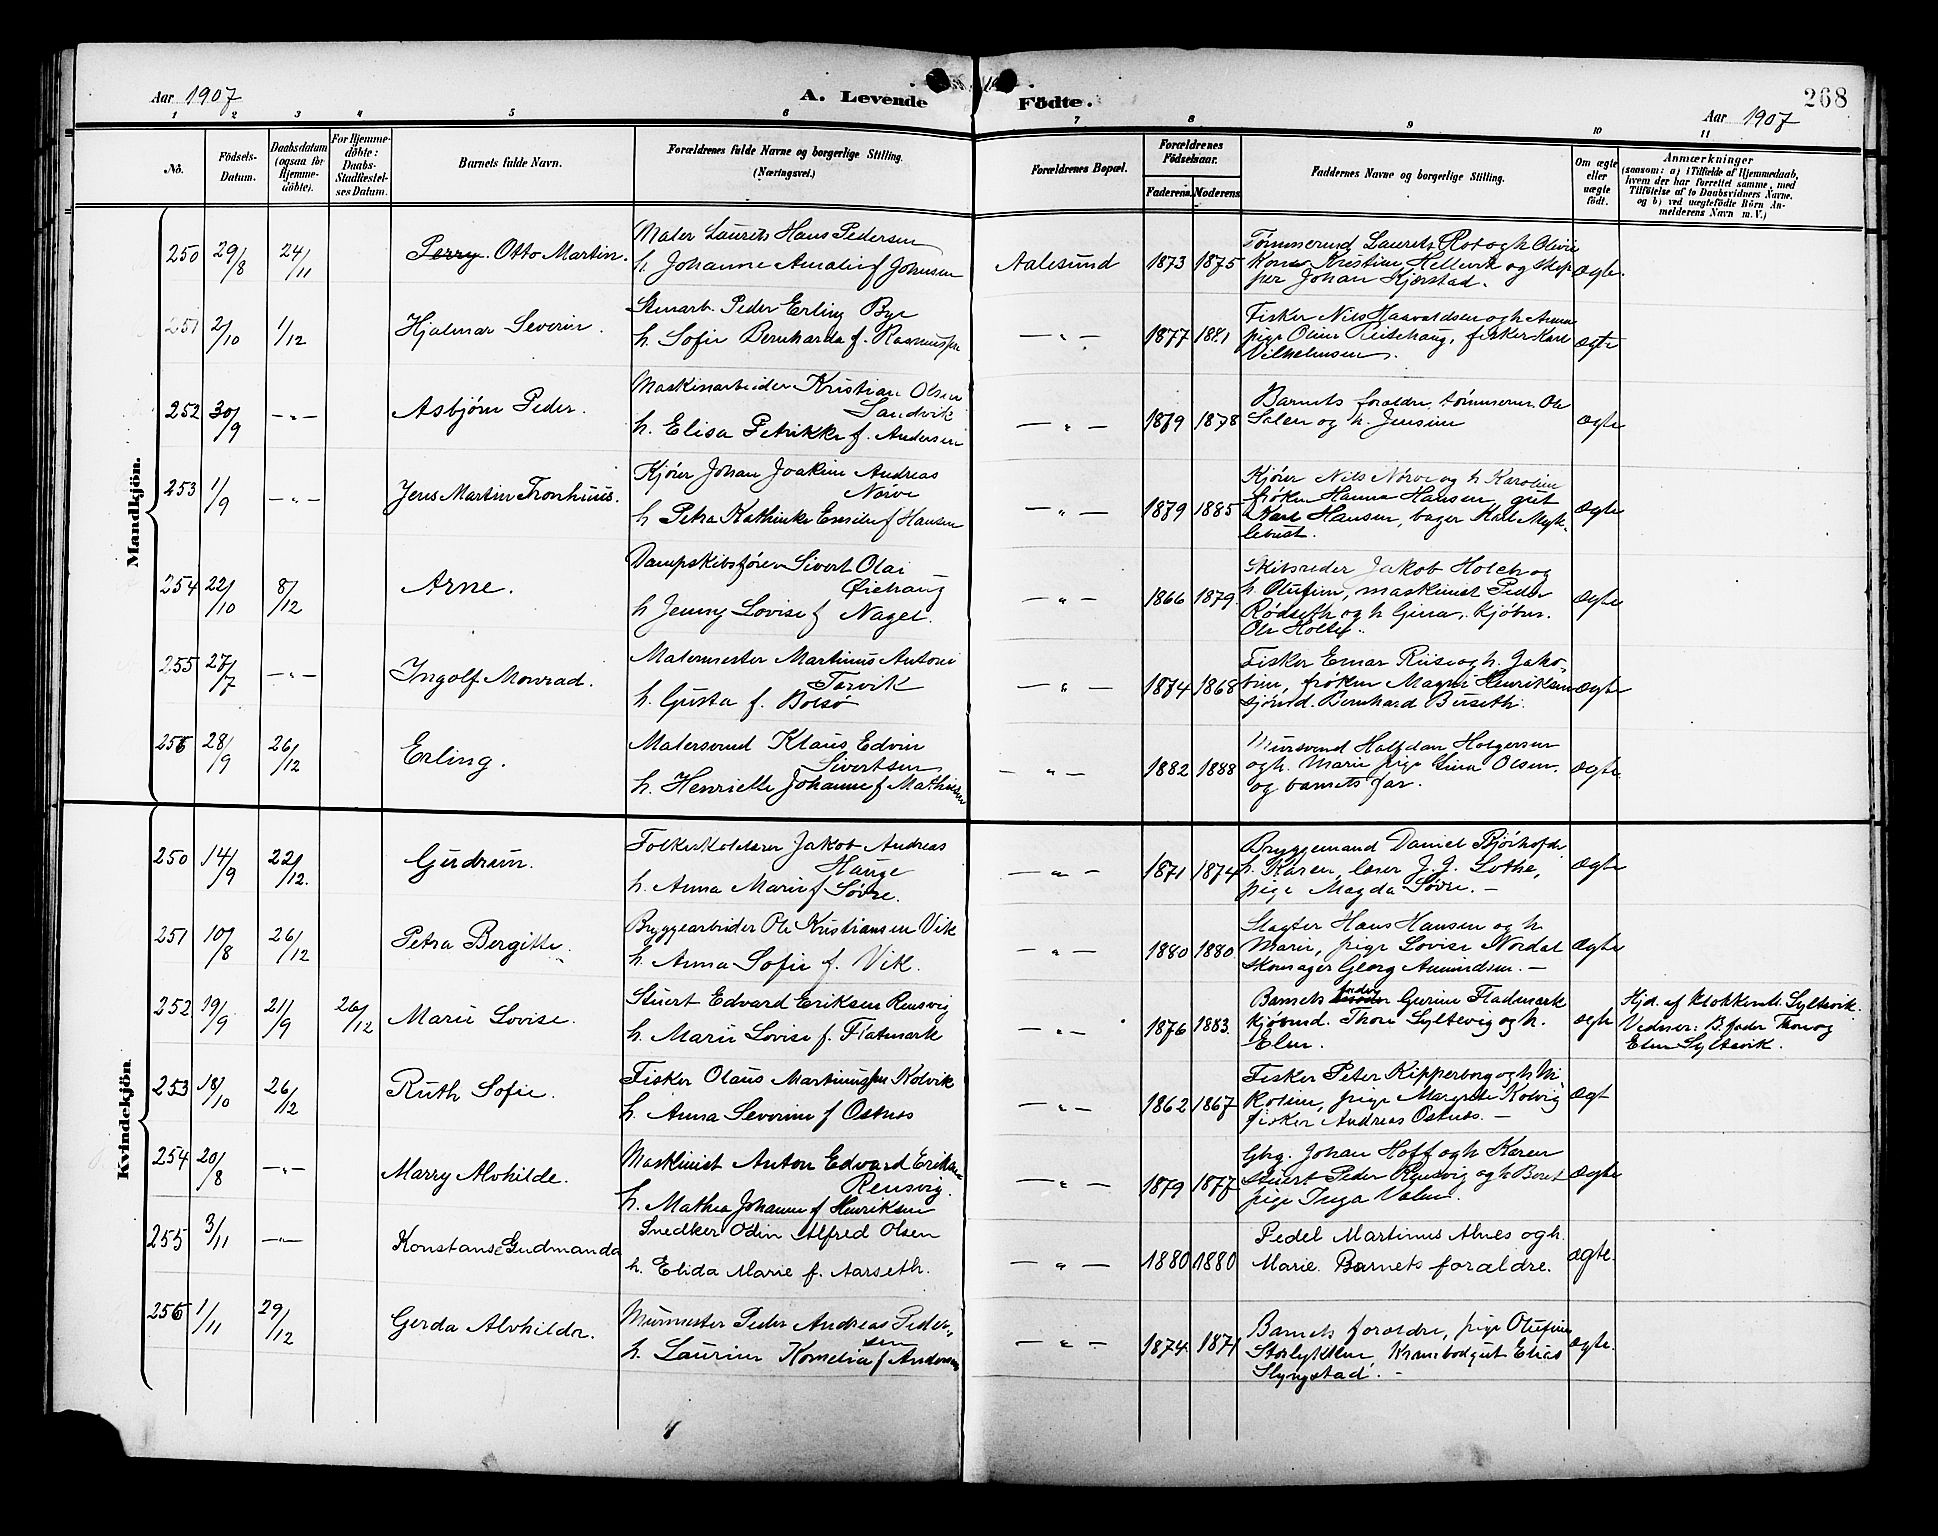 Aar 1907
A. Levende Födte.
268
Aar 1907
1 2 3 4 5 6 7 8 9 10 11
No.
Födsels-Datum.
Daabsdatum (ogsaa for Hjemmedöbte).
For Hjemmedöbte: Daabs-Stadfæstelses Datum.
Barnets fulde Navn.
Forældrenes fulde Navne og borgerlige Stilling. (Næringsvei.)
Forældrenes Bopæl.
Forældrenes Födselsaar.
Faderens. Moderens.
Faddernes Navne og borgerlige Stilling.
Om ægte eller uægte födt.
Anmærkninger
(saasom: a) i Tilfælde af Hjemmedaab, hvem der har forrettet samme, med Tilföielse af to Daabsvidners Navne. og b) ved uægtefödte Börn Anmelderens Navn m. V.)
Mandkjön.
250 29/8 24/11 Perry. Otto Martin. Maler Laurits Hans Pedersen
h. Johanne Amalie f Johnsen Aalesund 1873 1875 Tømmermd Laurits Rot og h Olivie
Kone Kristine Hellevik og Skip
per Johan Kjerstad. ægte.
251 2/10 1/12 Hjalmar Severin. Stenarb. Peder Erling Bye
h. Sofie Bernharda f. Rasmussen — " — 1877 1881 Fisker Nils Haavaldsen og h Anna
pige Oline Reitehaug, fisker Karl
Vilhelmsen. ægte
252 30/9 — " — Asbjørn Peder. Maskinarbeider Kristian Olsen
Sandvik
h. Elisa Petrikke f. Andersen — " — 1879 1878 Barnets forældre, tømmerm. Ole
Salen og h. Jensine ægte
253 1/9 — " — Jens Martin Tronhuus. Kjører Johan Joakim Andreas
Nørve
h Petra Kathinke Emilie f Hansen — " — 1879 1885 Kjører Nils Nørve og h Karoline
frøken Hanna Hansen, gut
Karl Hansen, bager Karl Myk
lebust. ægte
254 22/10 8/12 Arne. Dampskibsfører Sivert Olai
Øiehaug
h Jenny Lovise f Nagel. — " — 1866 1879 Skibsreder Jakob Holch og
h. Olufine, maskinist Peder
Rødseth og h Gina, Kjøbm.
Ole Holte. ægte
255 27/7 — " — Ingolf Monrad. Malermester Martinus Antoni
Tarvik
h. Gusta f. Bolsø — " — 1874 1868 Fisker Emar Riise og h. Jako-
bine, frøken Magna Henriksen
sjømd. Bernhard Buseth. ægte
256 28/9 26/12 Erling. Malersvend Klaus Edvin
Sivertsen
h. Henrielle Johanne f Mathisen — " — 1882 1888 Mursvend Halfdan Holgersen
og h. Marie pige Gina Olsen.
og barnets far. ægte.
Kvindekjön
250 14/9 22/12. Gudrun. Jakob Andreas
Hauge
h. Anna Marie f Søvre. — " — 1871 1874 Bryggemand Daniel
h. Karen, J. J. Lothe,
pige Magda Søvre. — ægte
251 10/8 26/12 Petra Bergitte. Bryggearbeider Ole Kristiansen Vik
h. Anna Sofie f. Vik. — " — 1880 1880 Slagter Hans Hansen og h.
Marie, pige Lovise Nordal
Skomager Georg Amundsen. — ægte
252 19/9 21/9 26/12 Marie Lovise. Stuert Edvard Eriksen Rensvig
h. Marie Lovise f. Flatmark — " — 1876 1883 Barnets Gurine Fladmark
kjøbmd. Thore Syltevig og h.
Elen ægte Hjd. af klokker Syltevik.
Vidner: B. fader Thore og
Elen Syltevik.
253 18/10 26/12 Ruth Sofie. Fisker Olaus Martinussen Kolvik
h. Anna Severine f Ostnes — " — 1862 1867 Fisker Peter Kipperberg og h Ni
koline, pige Margrete Kolvig
fisker Andreas Ostnes. — ægt
254 20/8 — " — Marry Alvhilde. Maskinist Anton Edvard Eriksen
Rensvig.
h. Mathea Johanne f Henriksen — " — 1879 1877 Gbg. Johan Hoff og h Karen
stuert Peder Rensvig og h Beret
pige Inga Valen. ægte
255 3/11 — " — Konstanse Gudmanda Snedker Odin Alfred Olsen
h. Elida Marie f. Aarseth. — " — 1880 1880 Pedel Martinus Alnes og h.
Marie. Barnets forældre. ægte.
256 1/11 29/12 Gerda Alvhilde. Murmester Peder Andreas Peder-
sen
h. Laurine Kornelia f Andersen — " — 1874 1871 Barnets forældre, pige Olufine
Storlykken, Krambodgut Elias
Slyngstad. — ægte.